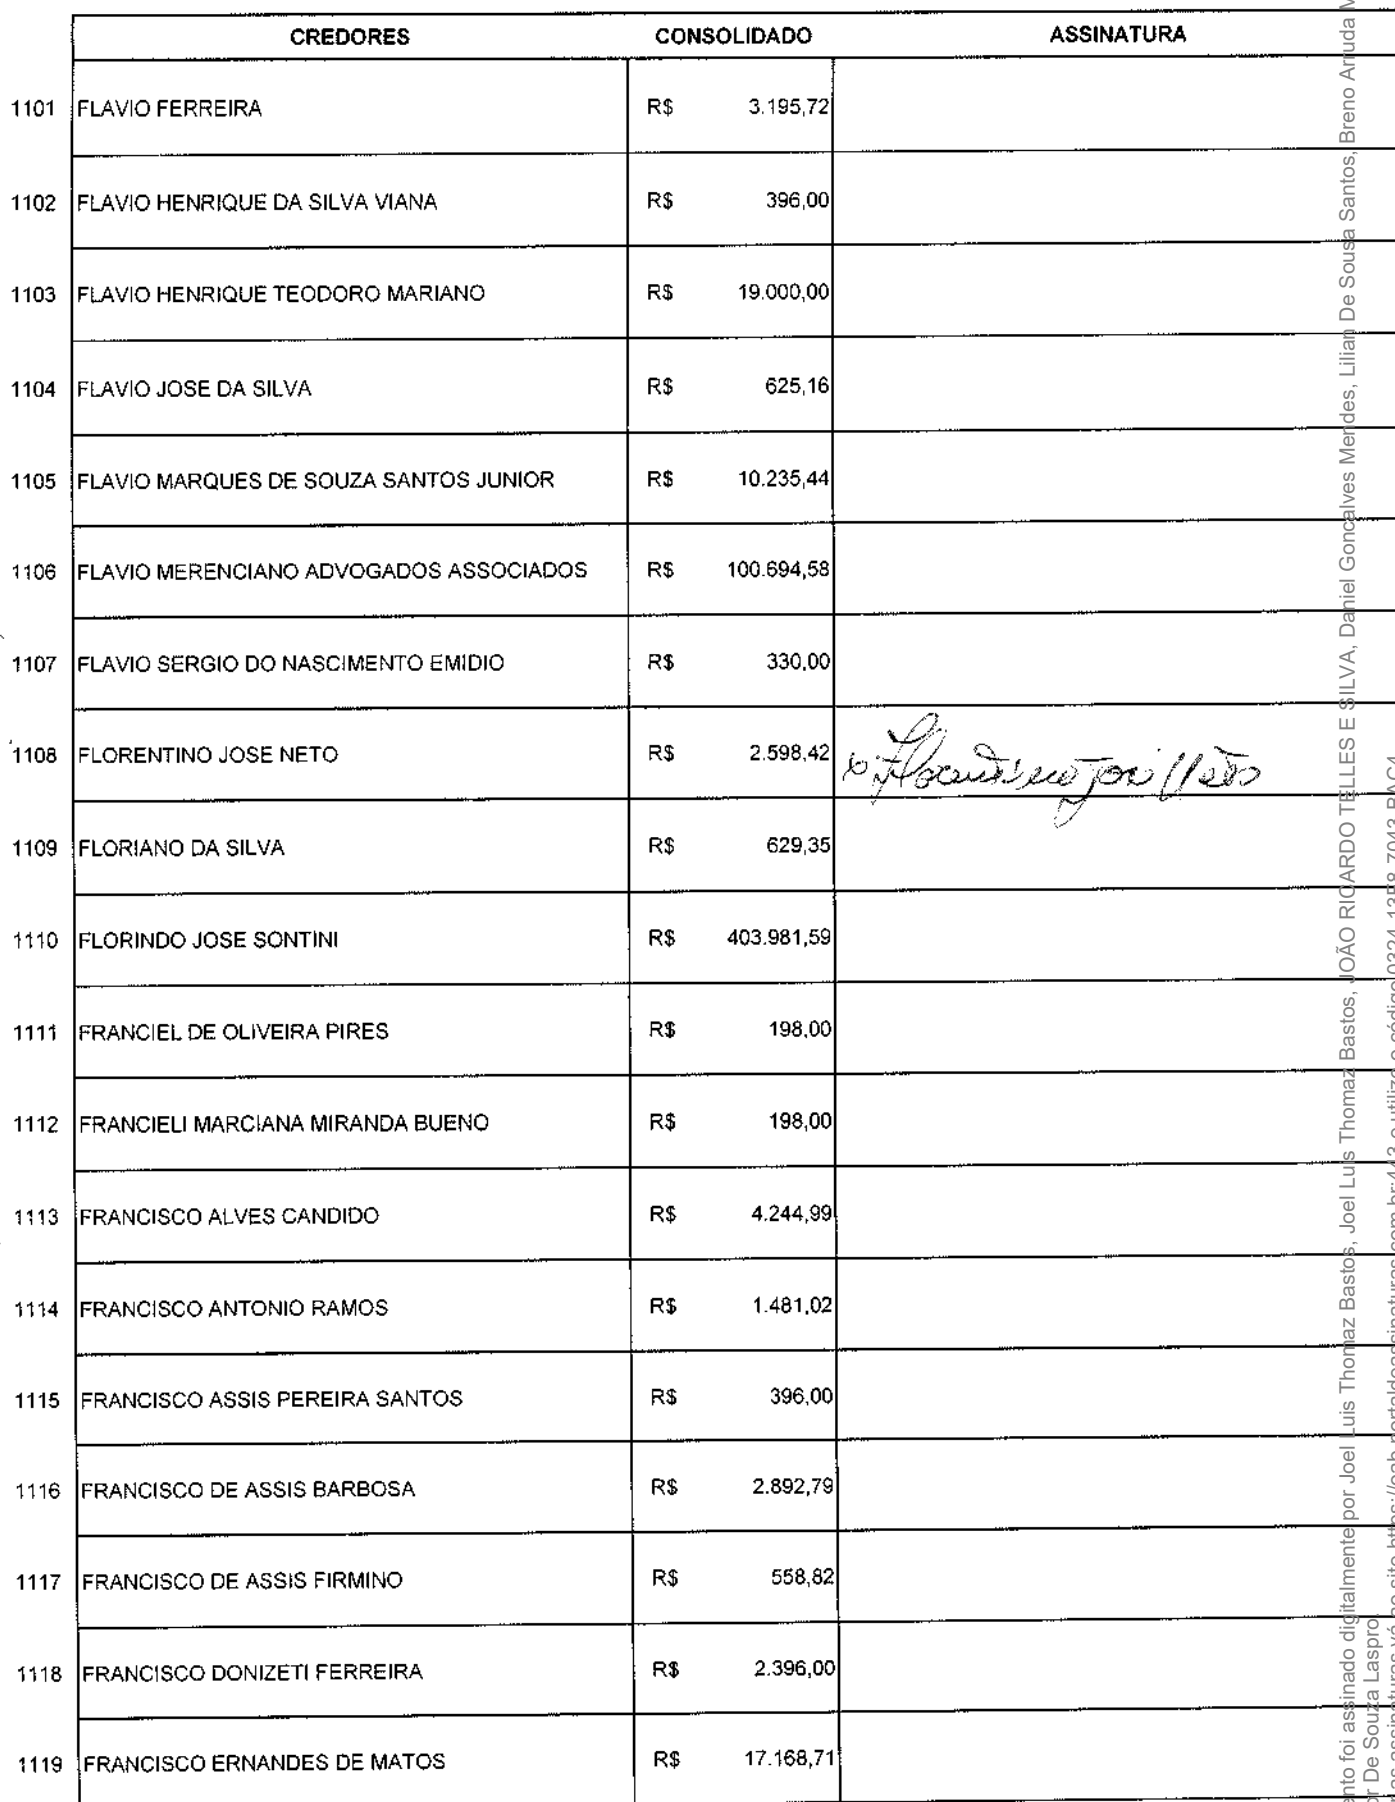 CREDORES CONSOLIDADO ASSINATURA
1101 FLAVIO FERREIRA R$ 3.195,72
1102 FLAVIO HENRIQUE DA SILVA VIANA R$ 396,00
1103 FLAVIO HENRIQUE TEODORO MARIANO R$ 19.000,00
1104 FLAVIO JOSE DA SILVA R$ 625,16
1105 FLAVIO MARQUES DE SOUZA SANTOS JUNIOR R$ 10.235,44
1106 FLAVIO MERENCIANO ADVOGADOS ASSOCIADOS R$ 100.694,58
1107 FLAVIO SERGIO DO NASCIMENTO EMIDIO R$ 330,00
1108 FLORENTINO JOSE NETO R$ 2.598,42
1109 FLORIANO DA SILVA R$ 629,35
1110 FLORINDO JOSE SONTINI R$ 403.981,59
1111 FRANCIEL DE OLIVEIRA PIRES R$ 198,00
1112 FRANCIELI MARCIANA MIRANDA BUENO R$ 198,00
1113 FRANCISCO ALVES CANDIDO R$ 4.244,99
1114 FRANCISCO ANTONIO RAMOS R$ 1.481,02
1115 FRANCISCO ASSIS PEREIRA SANTOS R$ 396,00
1116 FRANCISCO DE ASSIS BARBOSA R$ 2.892,79
1117 FRANCISCO DE ASSIS FIRMINO R$ 558,82
1118 FRANCISCO DONIZETI FERREIRA R$ 2.396,00
1119 FRANCISCO ERNANDES DE MATOS R$ 17.168,71
foi assinado digitalmente por Joel Luis Thomaz Bastos, Joel Luis Thomaz Bastos, JOÃO RICARDO TELLES E SILVA, Daniel Goncalves Mendes, Lilian De Sousa Santos, Breno Arruda
De Souza Laspro.